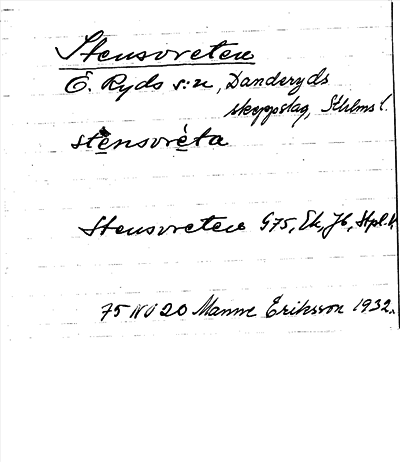 Stensvreten
Ö. Ryds s:n, Danderyds
skeppslag, Sthlms l.
stensvréta
Stensvreten G75, Ek, Jb, Stpl.k
75 NV 20 Manne Eriksson 1932.